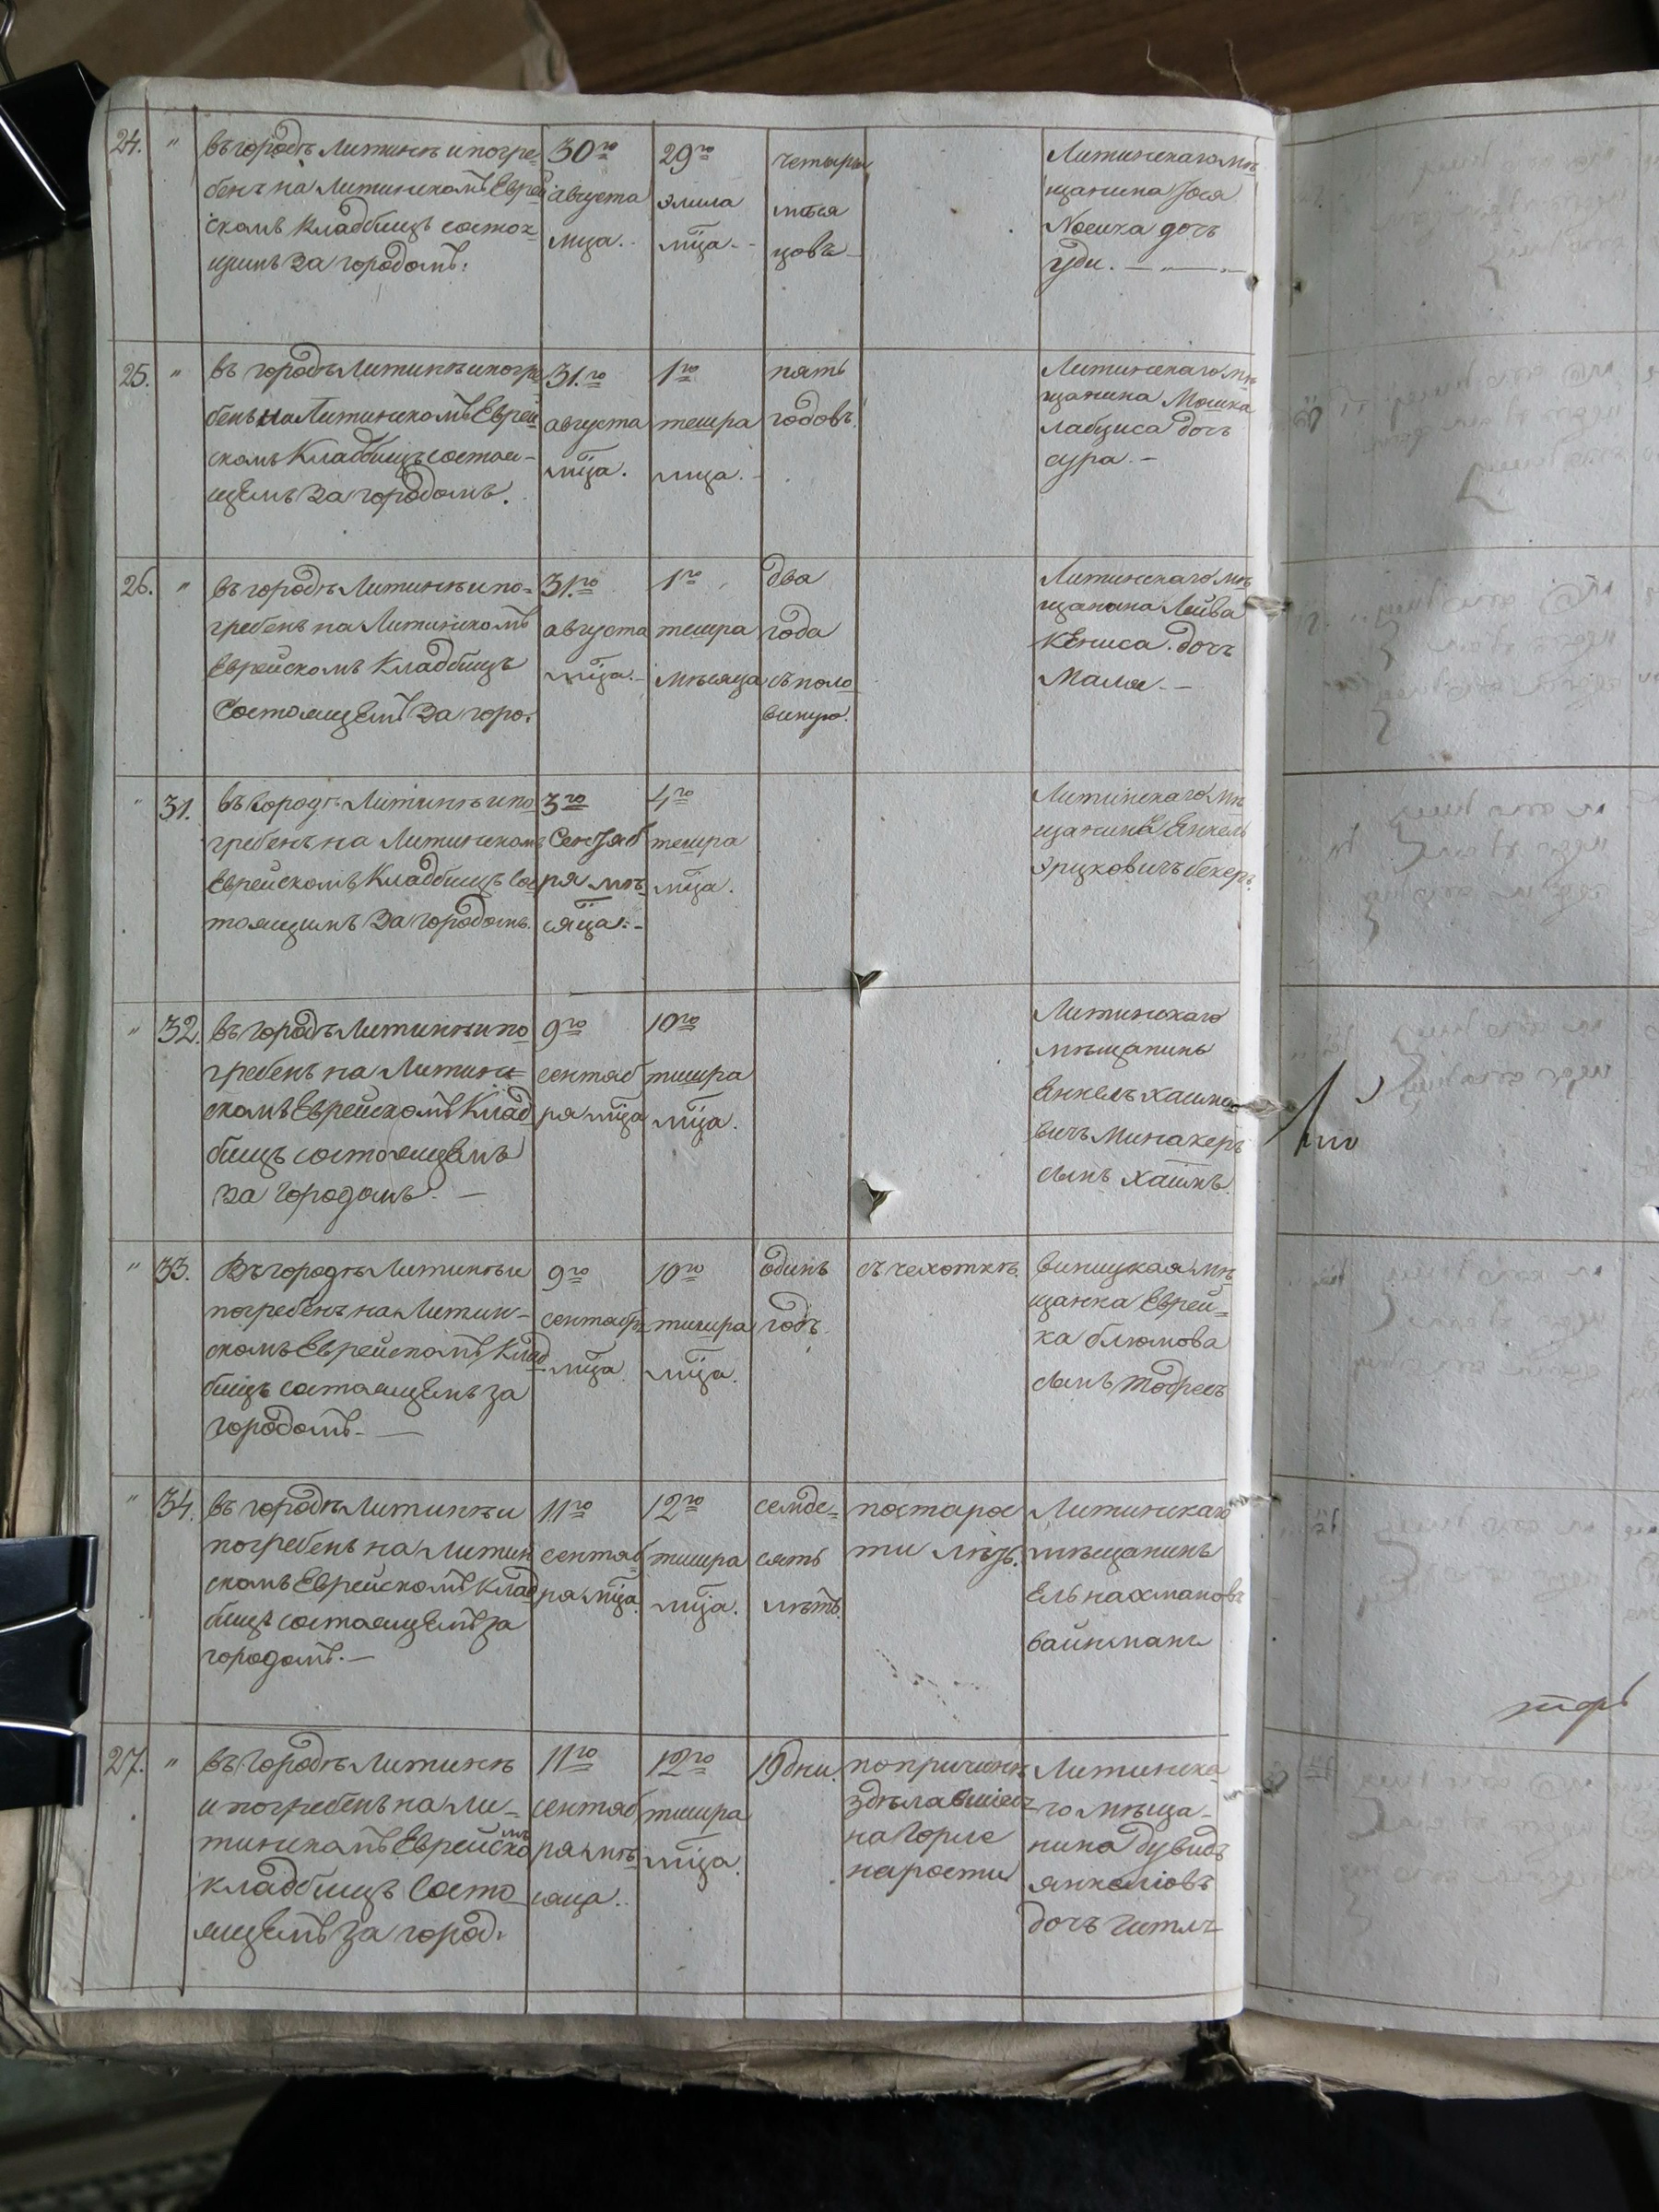 24. " въ городѣ Литинѣ и погре-
бенъ на Литинскомъ Еврей
скомъ Кладбищѣ состоя-
щимъ за городомъ.
30го
августа
мца.
29го
элила
мца.
четыри
мѣся
цовъ
Литинскаго мѣ
щанина Іося
Носика дочъ
уди.
25. " въ городѣ Литинѣ и погре
бенъ на Литинскомъ Еврей
скомъ Кладбищѣ состоя-
щемъ за городомъ.
31.го
августа
мца.
1го
тешра
мца.
пять
годовъ.
Литинскаго мѣ
щанина Мошка
лабциса дочъ
сура.
26. " въ городѣ Литинѣ и по-
гребенъ на Литинскомъ
Еврейскомъ Кладбищѣ
состоящемъ за горо.
31.го
августа
мца.
1го
тешра
мѣсяца
два
года
съ поло
виную.
Литинскаго мѣ
щанина Лейва
кениса. дочъ
Маля.
" 31. въ городѣ Литинѣ и по
гребенъ на Литинскомъ
Еврейскомъ Кладбищѣ сос
тоящимъ за городомъ.
3го
Сентяб
ря мѣ
сяца.
4го
тешра
мца.
Литинскаго мѣ
щанина Енкель
Эрцковичъ бекеръ.
" 32. въ городѣ Литинѣ и по
гребенъ на Литин
скомъ Еврейскомъ Клад
бищѣ состоящемъ
за городомъ.
9го
сентяб
ря мца
10го
тишра
мца.
Литинскаго
мѣщанинъ
Енкелъ хаимо
вичъ Минахеръ
сынъ хаимъ.
" 33. Въ городѣ Литинѣ и
погребенъ на Литин-
скомъ Еврейскомъ Клад
бищѣ состоящемъ за
городомъ.
9го
сентябр
мца
10го
тишра
мца.
одинъ
годъ.
съ чехоткѣ.
виницкая мѣ
щанка Еврей-
ка блюмова
сынъ тодресъ
" 34. въ городѣ Литинѣ и
погребенъ на Литин
скомъ Еврейскомъ Клад
бищѣ состоящемъ за
городомъ.
11го
сентяб
ря мца.
12го
тишра
мца.
семде-
сять
лѣтъ.
по старос
ти лѣтъ.
Литинскаго
мѣщанинъ
Ель нахмановъ
вайнманъ
27. " въ городѣ Литинѣ
и погребенъ на Ли-
тинскомъ Еврейскомъ
кладбищѣ состо
ящемъ за город.
11го
сентяб
ря мѣ
сяца.
12го
тишра
мца.
19 дни.
по причинѣ
здѣлавшіесь
на горле
нарости
Литинска
го мѣща-
нина дувидъ
янкеліовъ
дочъ гитлъ